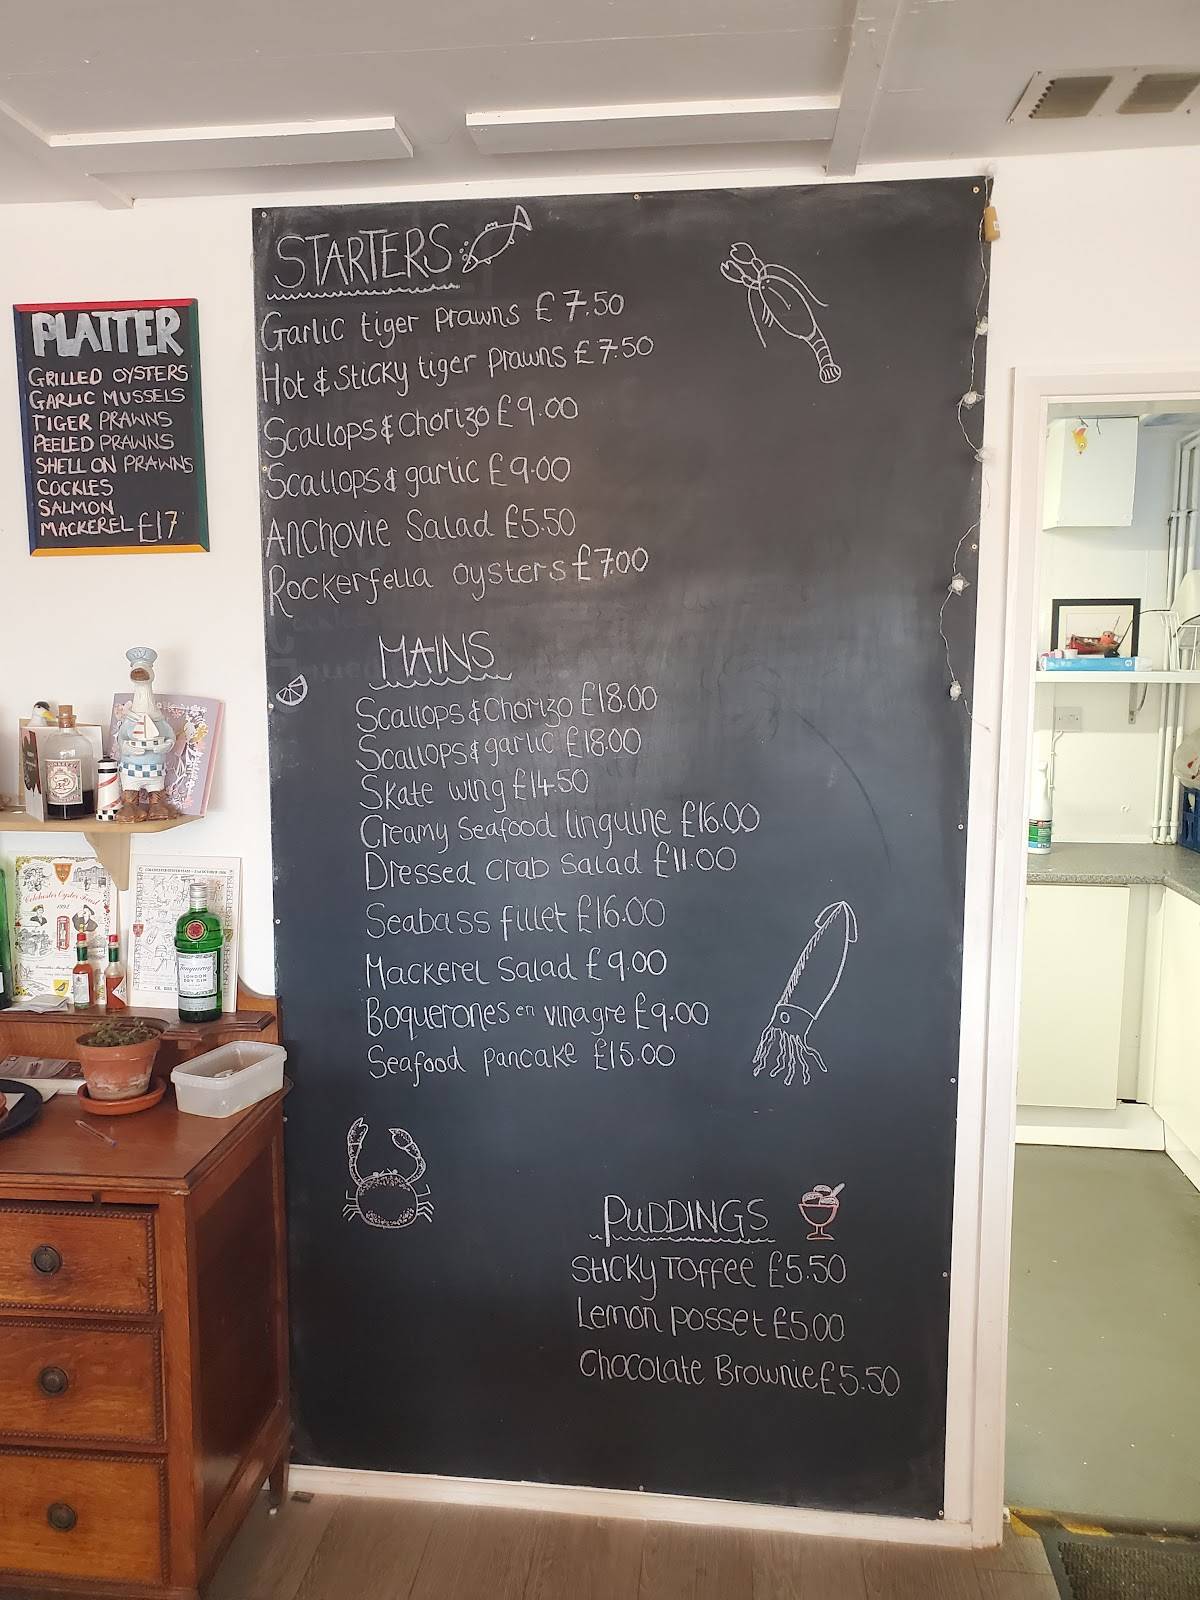 PLATTER
GRILLED OYSTERS
GARLIC MUSSELS
TIGER PRAWNS
PEELED PRAWNS
SHELL ON PRAWNS
COCKLES
SALMON
MACKEREL £17
STARTERS
Garlic tiger prawns £7.50
Hot & Sticky tiger prawns £7.50
Scallops & Chorizo £9.00
Scallops & garlic £9.00
Anchovie Salad £5.50
Rockerfella oysters £7.00
MAINS
Scallops & Chorizo £18.00
Scallops & garlic £18.00
Skate wing £14.50
Creamy Seafood linguine £16.00
Dressed crab Salad £11.00
Seabass fillet £16.00
Mackerel Salad £9.00
Boquerones en vinagre £9.00
Seafood pancake £15.00
PUDDINGS
Sticky Toffee £5.50
Lemon posset £5.00
Chocolate Brownie £5.50
Colchester Oyster Feast
Tanqueray
LONDON
DRY GIN